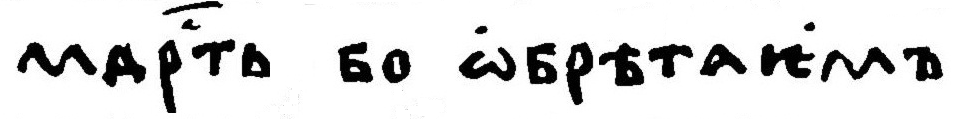 мдрⷭ҇ть бо ѡ̇брѣтаѥ̇мъ